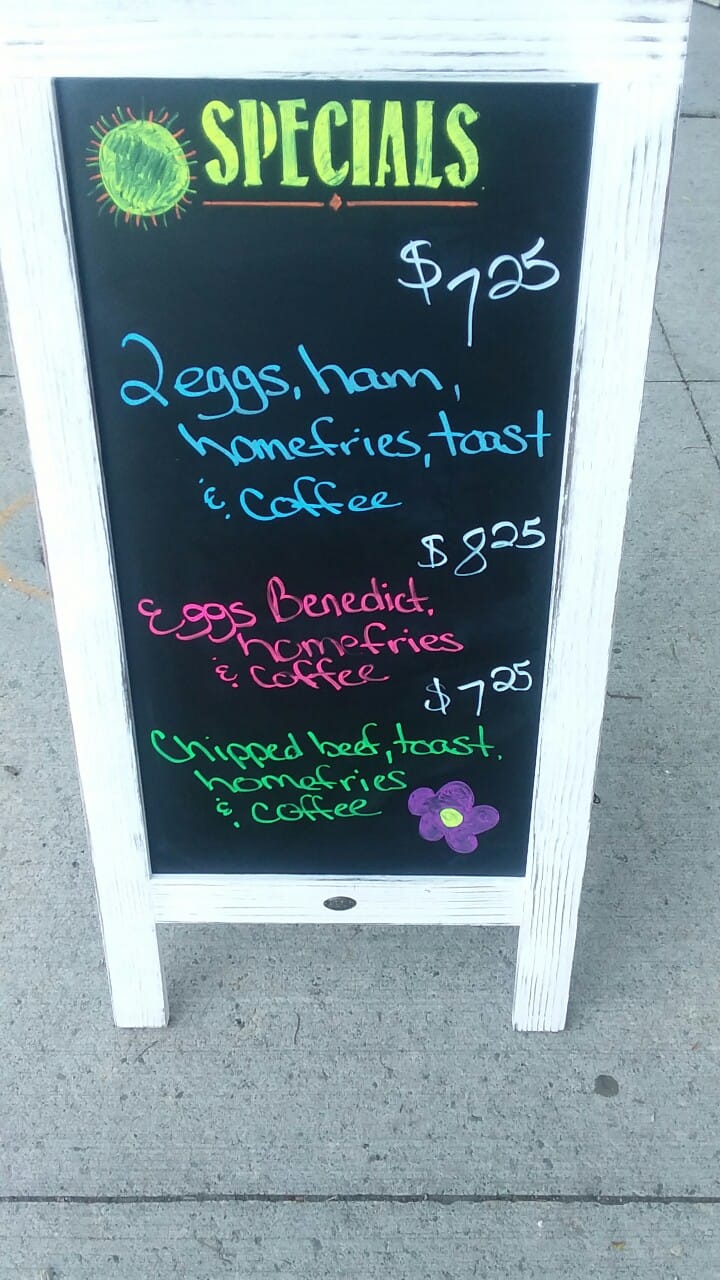 SPECIALS
$7.25
2 eggs, ham,
homefries, toast
& coffee
$8.25
Eggs Benedict,
homefries
& coffee
$7.25
Chipped beef, toast,
homefries
& coffee